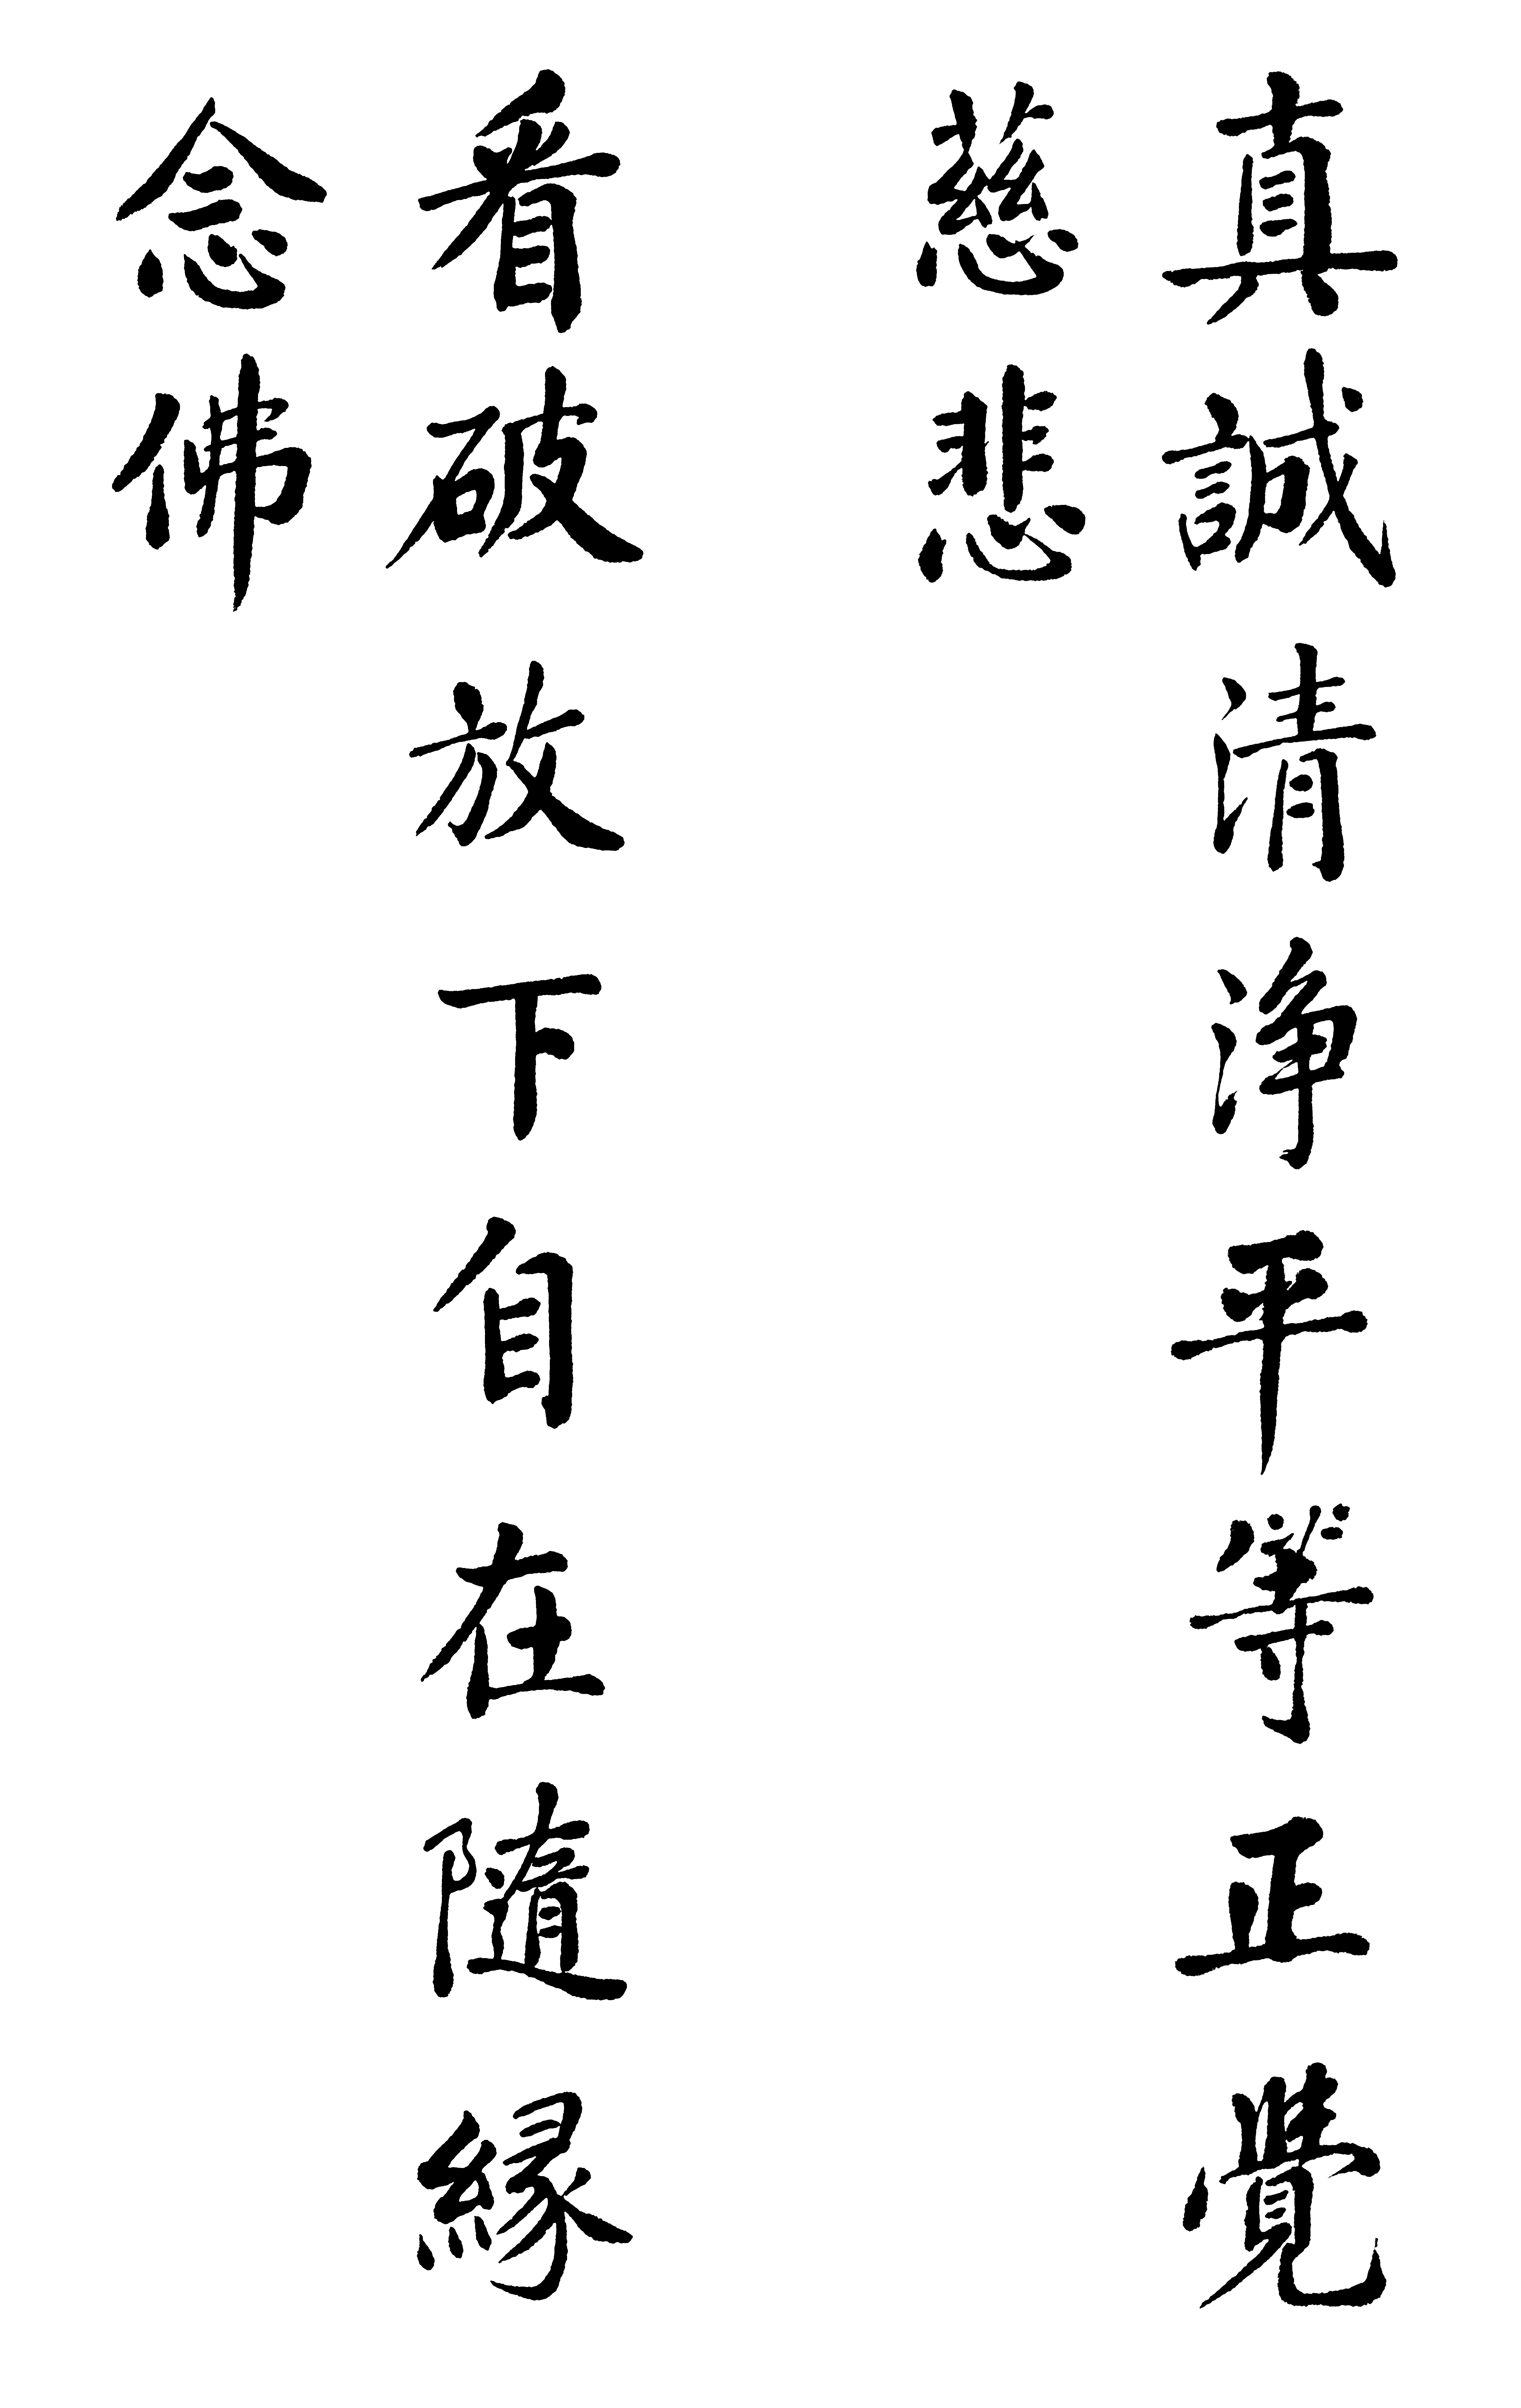 真誠清淨平等正覺
慈悲
看破放下自在隨緣
念佛